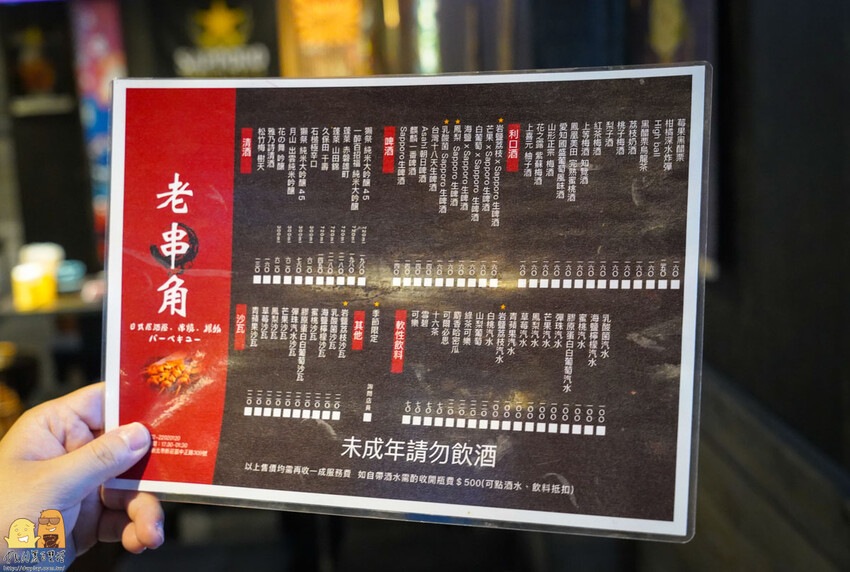 SAPPORO
老串角
日式居酒屋、串燒、鍋物
バーベキュー
清酒
獺祭 純米大吟釀 45
一醉百招福 純米大吟釀
蓬萊 赤磐雄町
蓬萊 山田錦
久保田 千壽
石槌極辛口
獺祭 純米大吟釀 45
月山 出雲純米吟釀
花の舞 吟釀
雅乃詩清酒
松竹梅 樹天
720ml
720ml
720ml
300ml
300ml
300ml
啤酒
★岩鹽荔枝 x Sapporo 生啤酒
芒果 x Sapporo 生啤酒
白葡萄 x Sapporo 生啤酒
海鹽 x Sapporo 生啤酒
★鳳梨 Sapporo 生啤酒
★乳酸菌 Sapporo 生啤酒
台灣十八天生啤酒
Asahi 朝日啤酒
麒麟 一番啤酒
Sapporo 生啤酒
利口酒
莓果黑醋栗
柑橘深水炸彈
High ball
黑醋栗烏龍茶
荔枝奶酒
桃子梅酒
梨子酒
紅茶梅酒
上等梅酒 知覽酒
鳳凰美田 完熟蜜桃酒
愛知國盛葡萄風味酒
山形正宗 梅酒
花之露 紫蘇梅酒
上喜元 柚子酒
沙瓦
★岩鹽荔枝沙瓦
乳酸菌沙瓦
海鹽檸檬沙瓦
蜜桃沙瓦
膠原蛋白白葡萄沙瓦
彈珠汽水沙瓦
芒果沙瓦
鳳梨沙瓦
草莓沙瓦
青蘋果沙瓦
其他
★季節限定
詢問店員
軟性飲料
乳酸菌汽水
海鹽檸檬汽水
蜜桃汽水
膠原蛋白白葡萄汽水
彈珠汽水
芒果汽水
鳳梨汽水
草莓汽水
青蘋果汽水
★岩鹽荔枝汽水
白桃汽水
山梨葡萄
綠茶可樂
麝香哈密瓜
可爾必思
十六茶
雪碧
可樂
未成年請勿飲酒
以上售價均需再收一成服務費 如自帶酒水需酌收開瓶費＄500(可點酒水、飲料抵扣)